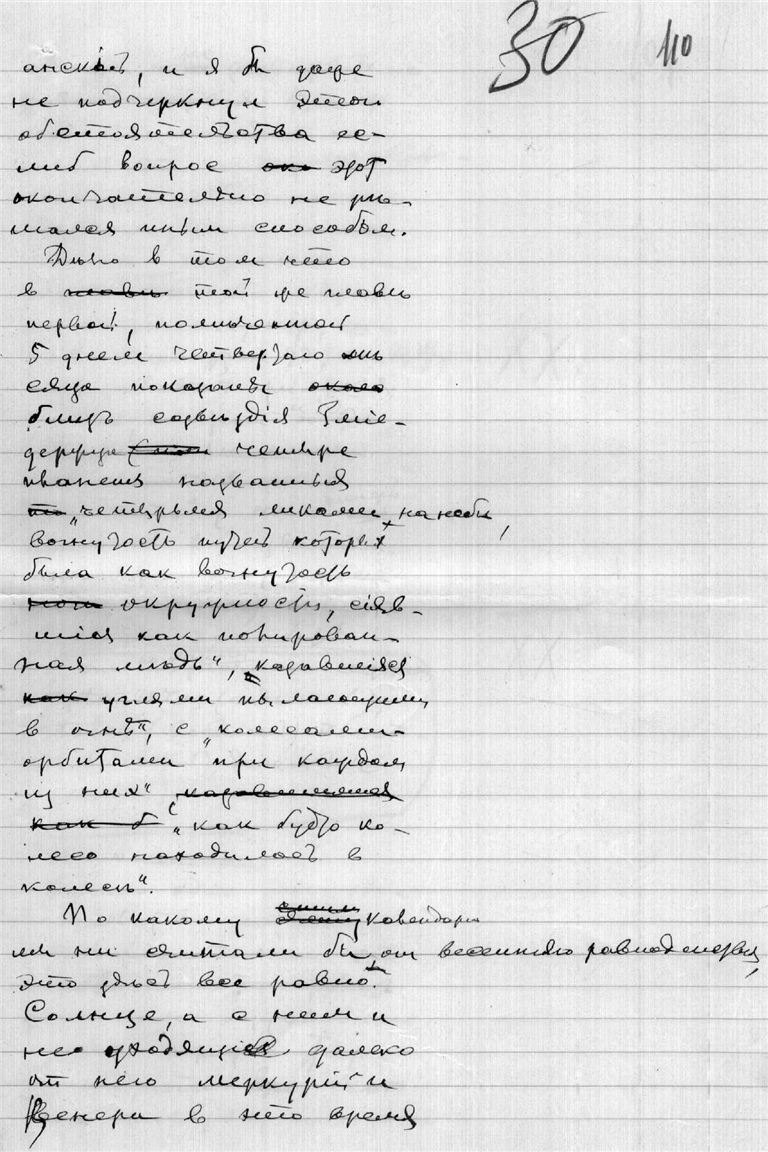 30 110
анскій, и я бы даже
не подчеркнул этого
обстоятельства ес-
либ вопрос око этот
окончательно не рѣ-
шался иным способом.
Дѣло в том что
в главѣ той же главѣ
первой, помѣченной
5 днем четвертаго мѣ
сяца показаны около
близъ созвѣздія Змѣе-
держца четыре
планеты названныя
"четырьмя ликами на небѣ,
вогнутость путей которых
была как вогнутость
окружности, сіяв-
шія как полирован-
ная мѣдь", казавшіяся
как углями пылающими
в огнѣ", с "колесами-
орбитами "при каждом
из них" казавшимися
как б "как будто ко-
лесо находилось в
колесѣ".
По какому календарю
мы ни считали бы, от весенняго равноденствія,
это здѣсь все равно.
Солнце, а с ним и
не уходящіе далеко
от него меркурій и
Венера в это время